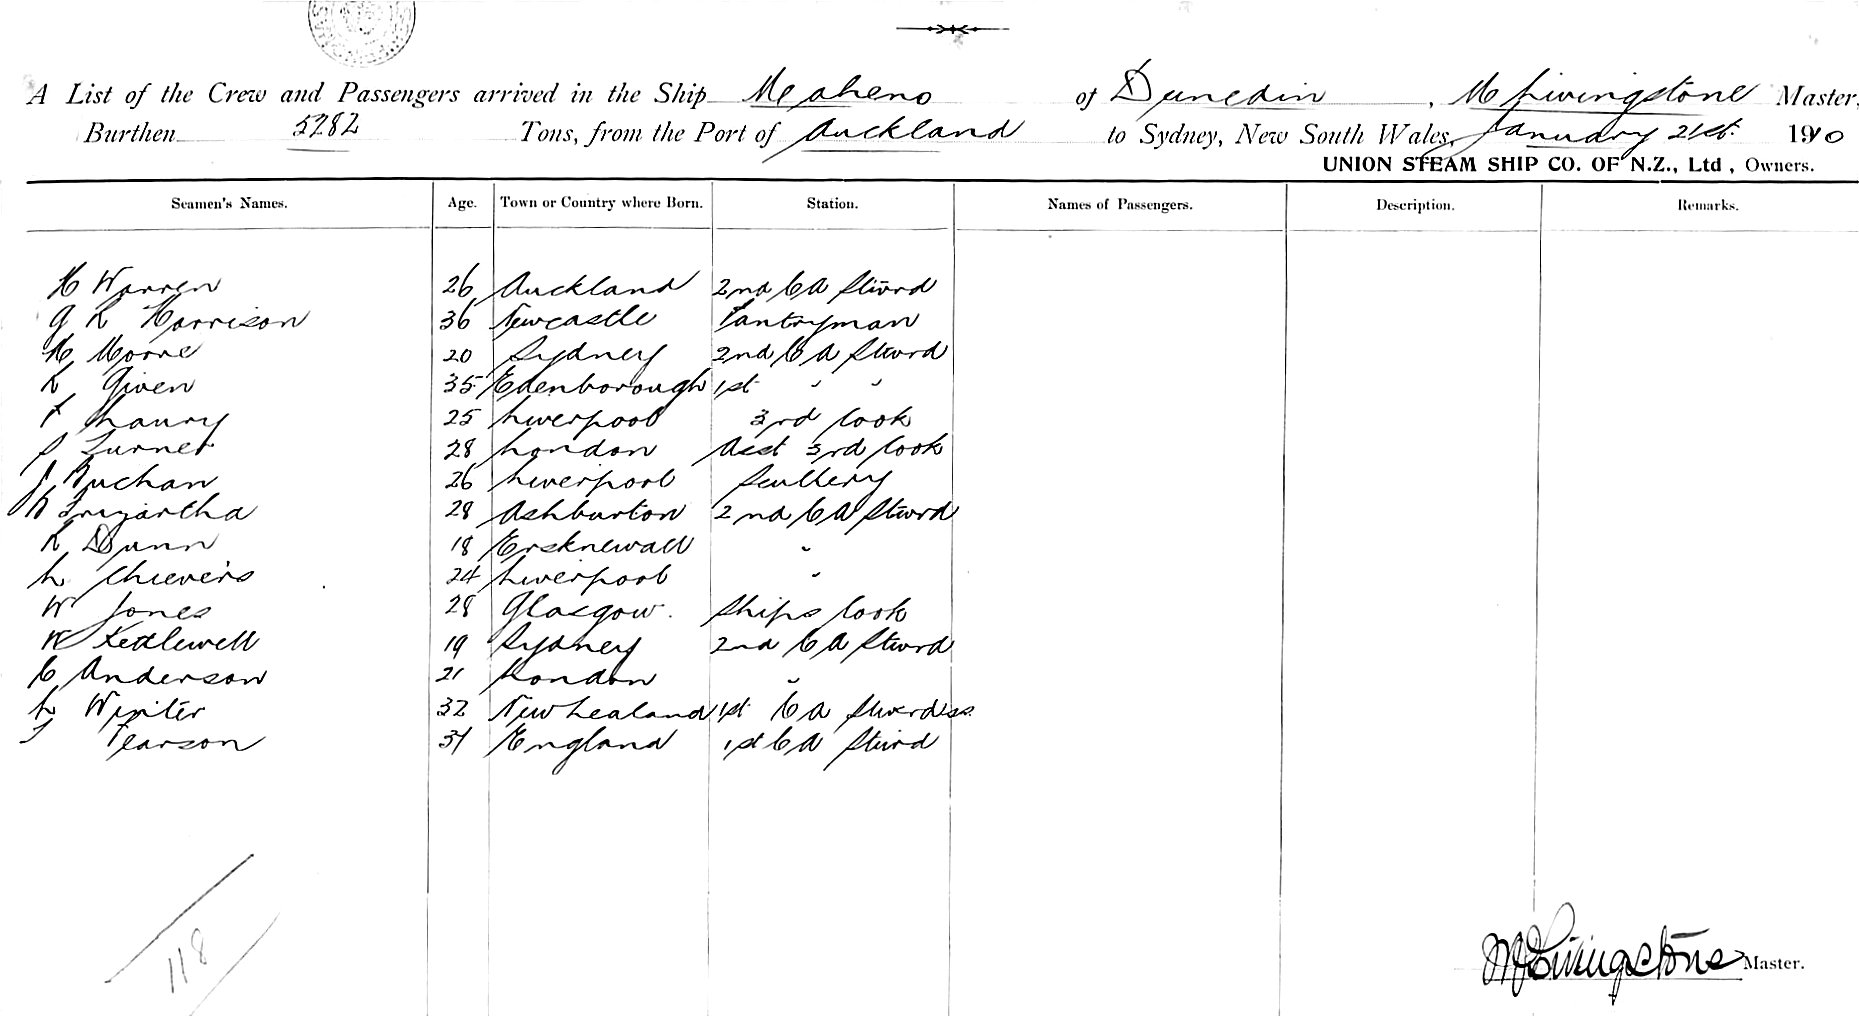 A List of the Crew and Passengers arrived in the Ship Maheno of Dunedin, M Livingstone Master,
Burthen 5282 Tons, from the Port of Auckland to Sydney, New South Wales, January 21st. 1910
UNION STEAM SHIP CO. OF N.Z., Ltd, Owners.
Seamen's Names. Age. Town or Country where Born. Station. Names of Passengers. Description. Remarks.
H Warren 26 Auckland 2nd CA Stwrd
G L Harrison 36 Newcastle Pantryman
H Moore 20 Sydney 2nd CA Stwrd
L Given 35 Edenborough 1st " "
F 25 Liverpool 3rd Cook
S Turner 28 London Asst 3rd Cook
J Buchan 26 Liverpool Scullery
28 Ashburton 2nd CA Stwrd
L Dunn 18 "
L Chievers 24 Liverpool "
W Jones 28 Glasgow. Ships Cook
Kettlewell 19 Sydney 2nd CA Stwrd
C Anderson 21 London "
L Winter 32 New Zealand 1st CA Stwrdss.
Pearson 31 England 1st CA Stwrd
118
M Livingstone Master.